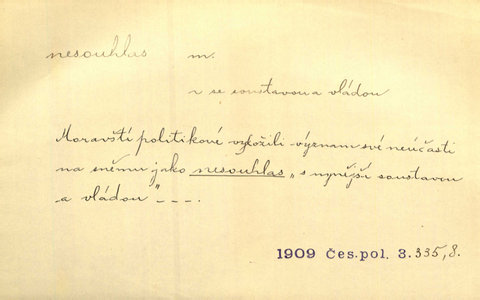 nesouhlas m.
n se soustavou a vládou
Moravští politikové vyložili význam své neúčasti
na sněmu jako nesouhlas „s nynější soustavou
a vládou" _ _ _ .
1909 Čes.pol. 3.335,8.